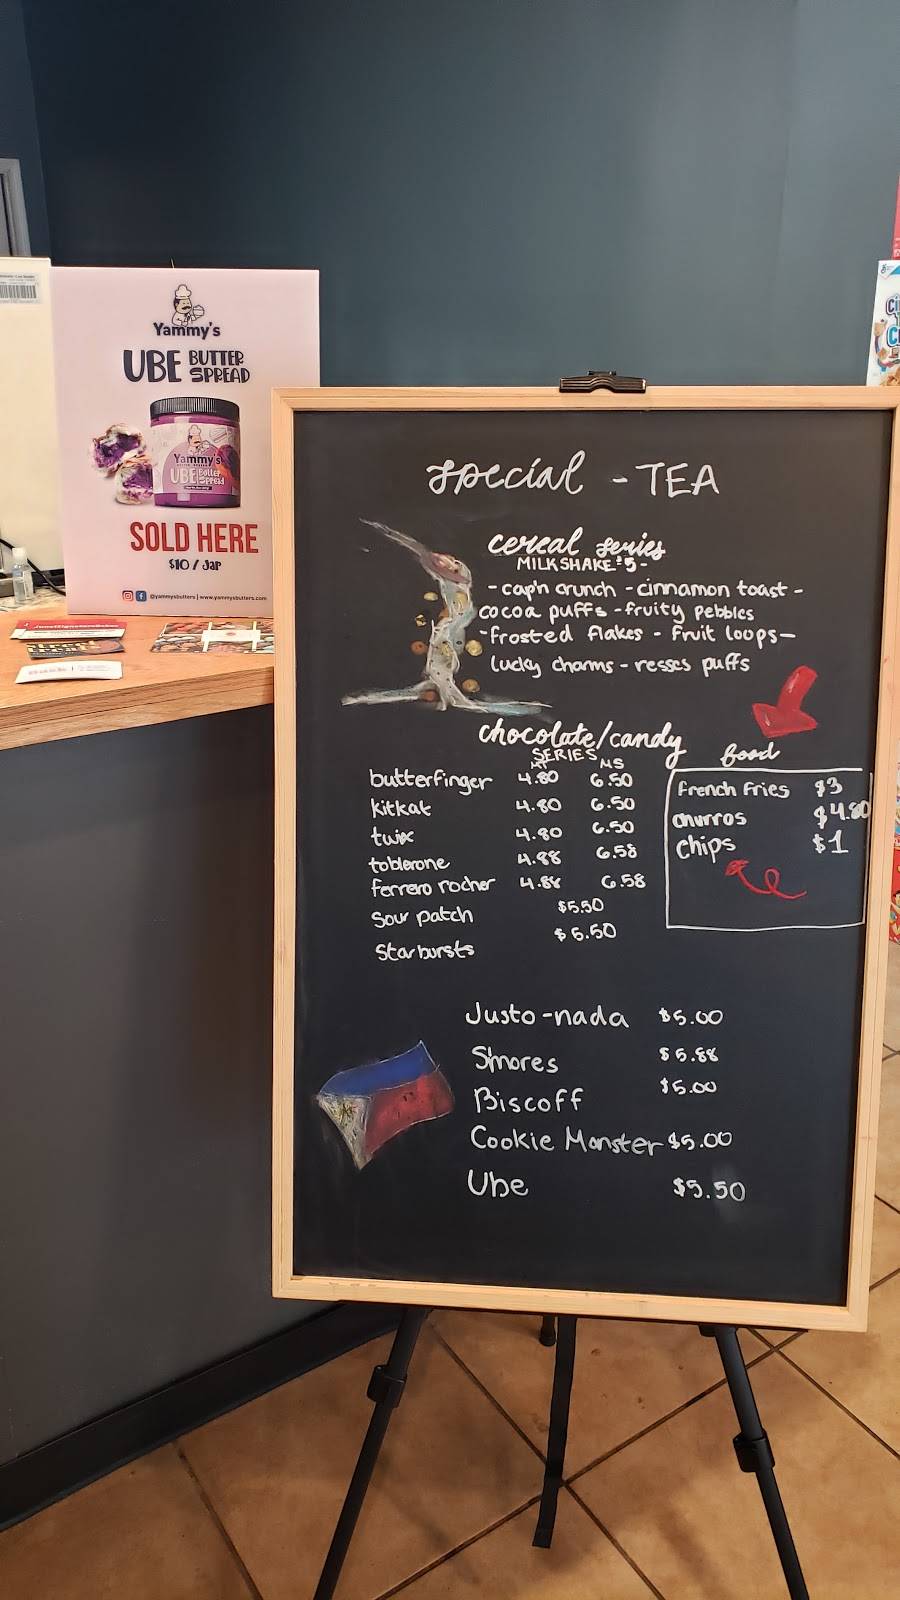 Yammy's
UBE BUTTER SPREAD
Yammy's
UBE Butter Spread
SOLD HERE
$10 / Jar
@yammysbutters | www.yammysbutters.com
special - TEA
cereal series
MILKSHAKE $5-
-cap'n crunch - cinnamon toast -
cocoa puffs - fruity pebbles
-frosted flakes - fruit loops-
lucky charms - resses puffs
chocolate/candy
SERIES
MT MS
butterfinger 4.80 6.50
kitkat 4.80 6.50
twix 4.80 6.50
toblerone 4.88 6.58
ferrero rocher 4.88 6.58
sour patch $5.50
starbursts $5.50
food
french fries $3
churros $4.80
chips $1
Justo-nada $5.00
S'mores $5.88
Biscoff $5.00
Cookie Monster $5.00
Ube $5.50